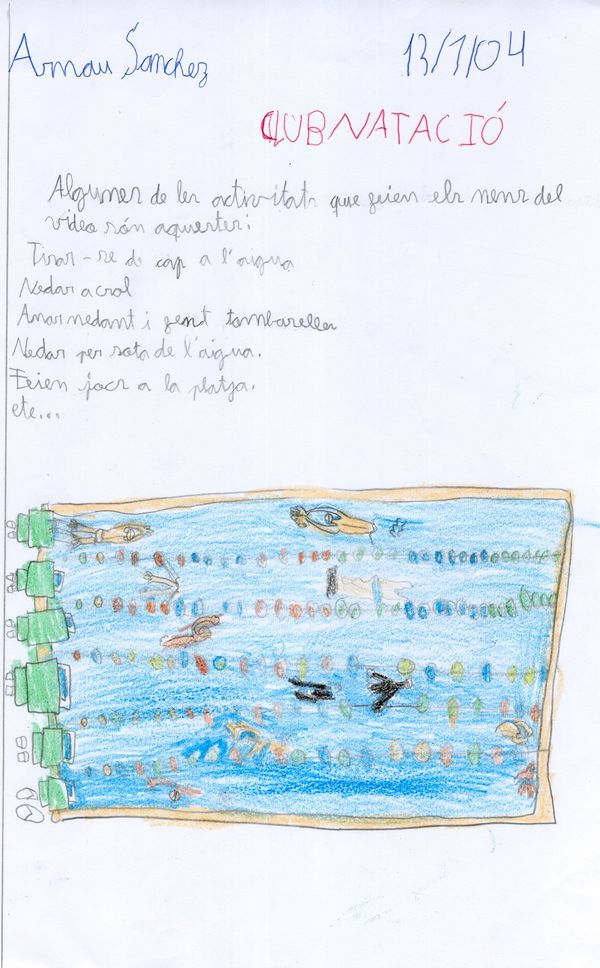 Arnau Sánchez 13/1/04
CLUB NATACIÓ
Algunes de les activitats que feien els nens del
video són aquestes:
Tirar-se de cap a l'aigua
Nedar a crol
Anar nedant i fent tombarelles
Nedar per sota de l'aigua.
Feien jocs a la platja.
etc...